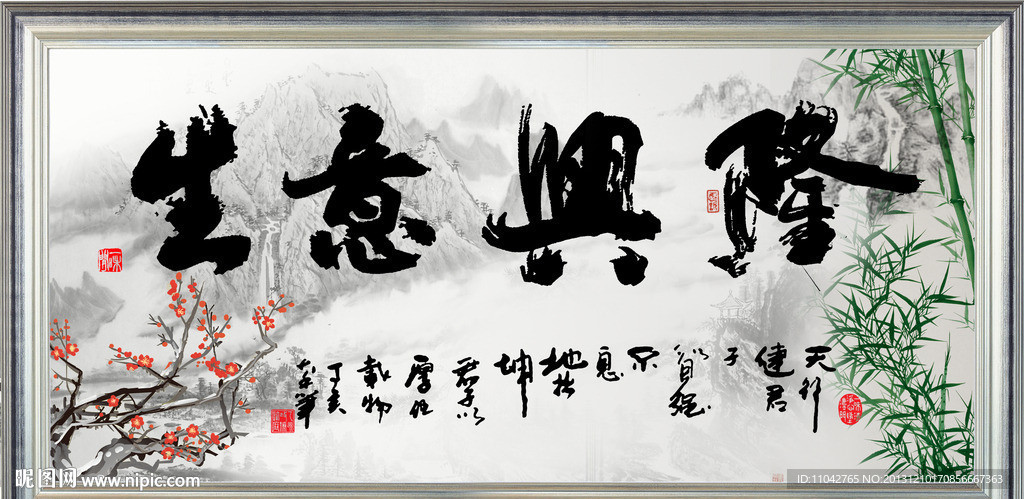 生意興隆
天行
健君
子
以自強
不
息
地势
坤
君子以
厚德
載物
丁亥
昵图网 www.nipic.com
ID:11042765 NO:20131210170856667363